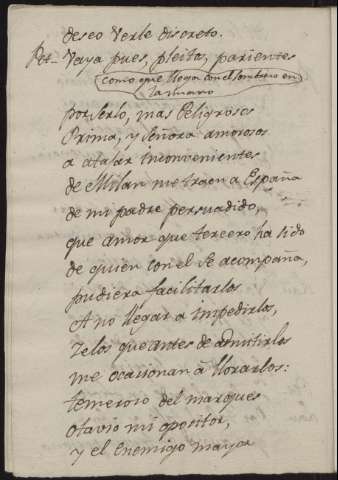 deseo verle discreto.
Rot= Vaya pues, pleita, parientes
como que llega con el sombrero en
la mano
por serlo, mas Peligrosos
Prima, y señora amorosos
a atajar inconvenientes
de Milan me traen a España
de mi padre persuadido,
que amor que tercero ha sido
de quien con el se acompaña,
pudiera facilitarlos
A no llegar a impedirlos,
Zelos que antes de admitirlos
me ocasionan à llorarlos:
temeroso del marques
otavio mi opositor,
y el Enemigo mayor